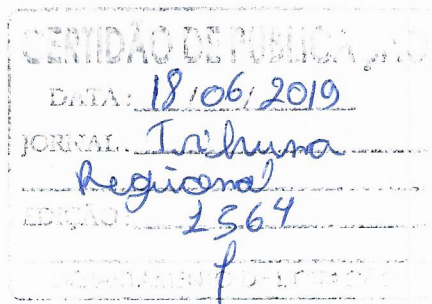 CERTIDÃO DE PUBLICAÇÃO
DATA: 18/06/2019
JORNAL: Tribuna
Regional
EDIÇÃO: 1364